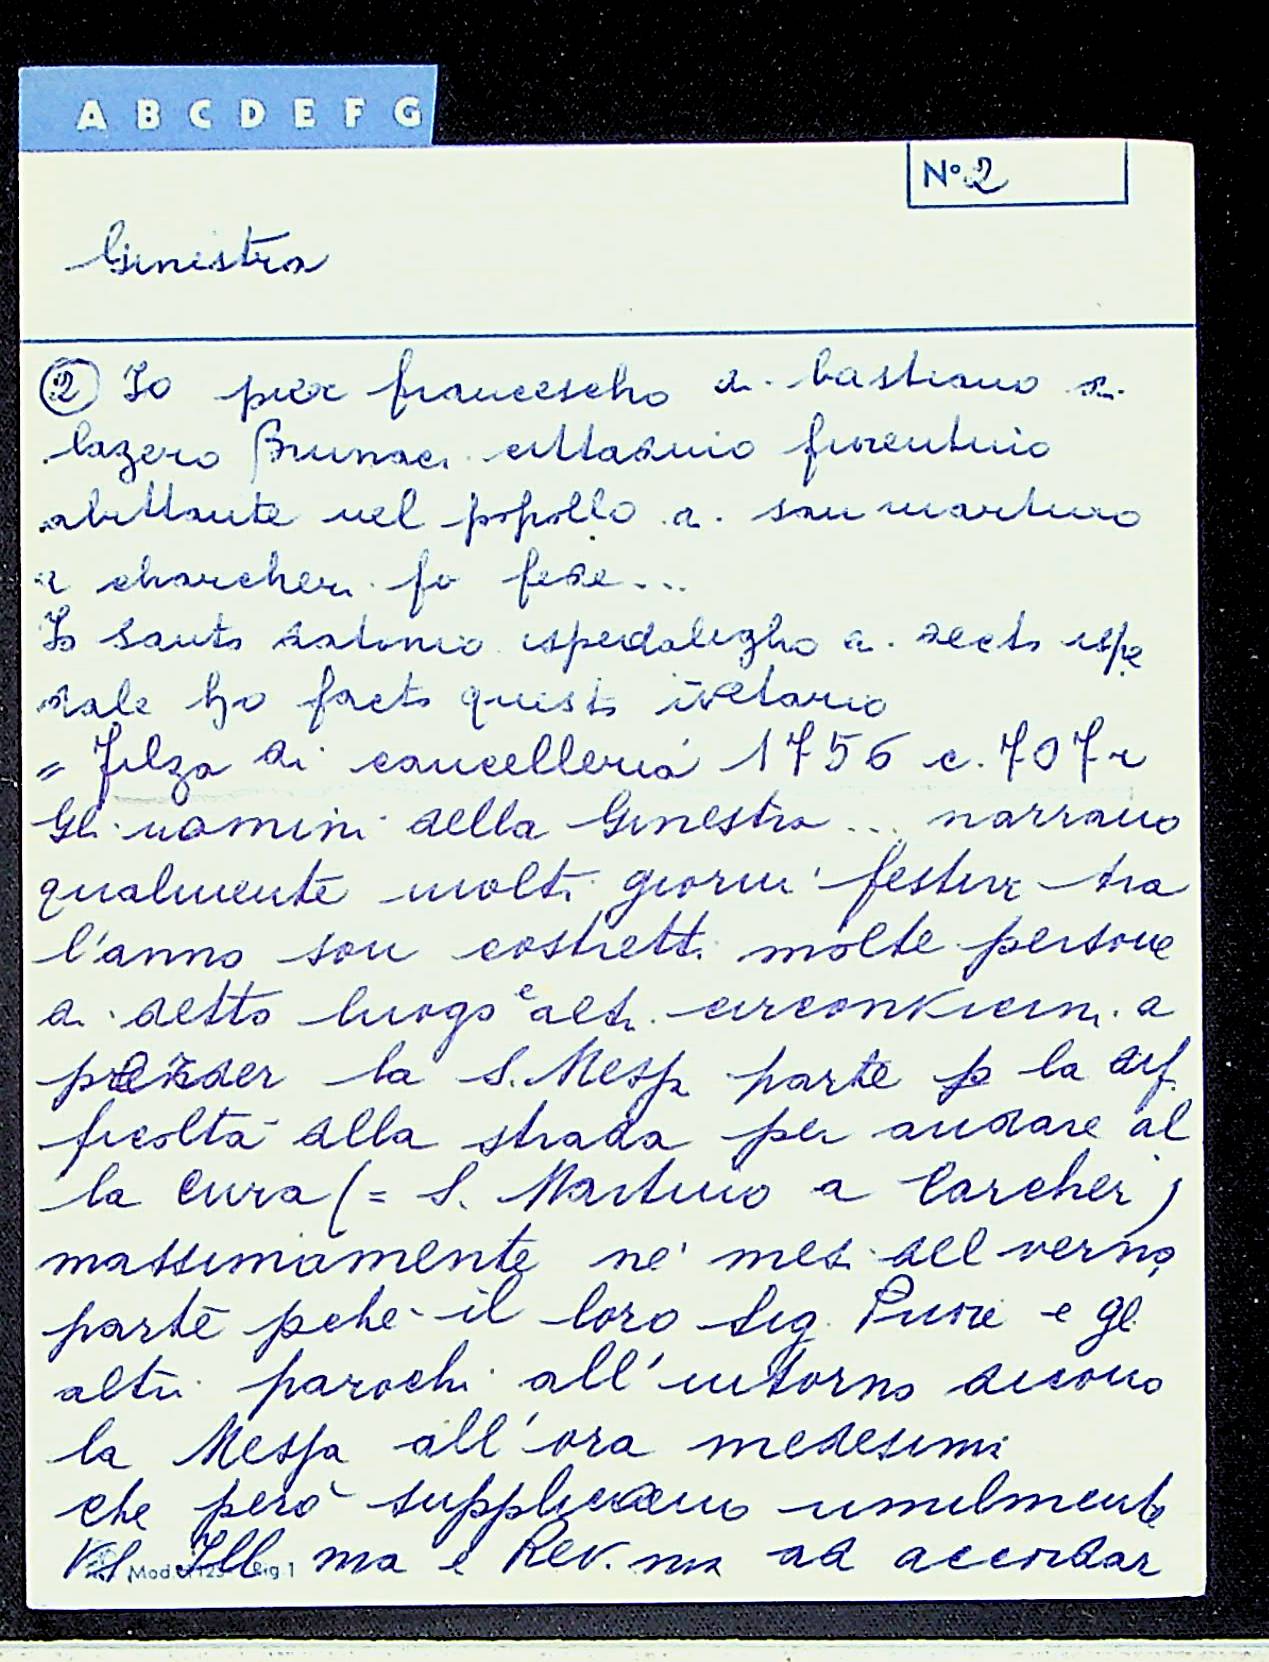 A B C D E F G
N° 2
Ginestra
② Io pier francescho di bastiano di
lazero Brunaci cittadinio fiorentinio
abittante nel popollo di san martino
a charcheri fo fede...
Io Santo Antonio ispedaligho di decto ispe
dale ho facto questo ivetario
= Filza di cancelleria 1756 c. 707r
Gli uomini della Ginestra ... narrano
qualmente molti giorni festivi tra
l'anno son costretti molte persone
di detto luogo e alti circonvicini a
perder la S. Messa parte p la dif
ficoltà della strada per andare al
la Cura (= S. Martino a Carcheri)
massimamente ne' mesi del verno,
parte pche il loro Sig. Priore e gl
altri parochi all'intorno dicono
la Messa all'ora medesimi
che però supplicano umilmente
VS Ill ma e Rev. ma ad accordar
Mod. 125 Rig 1